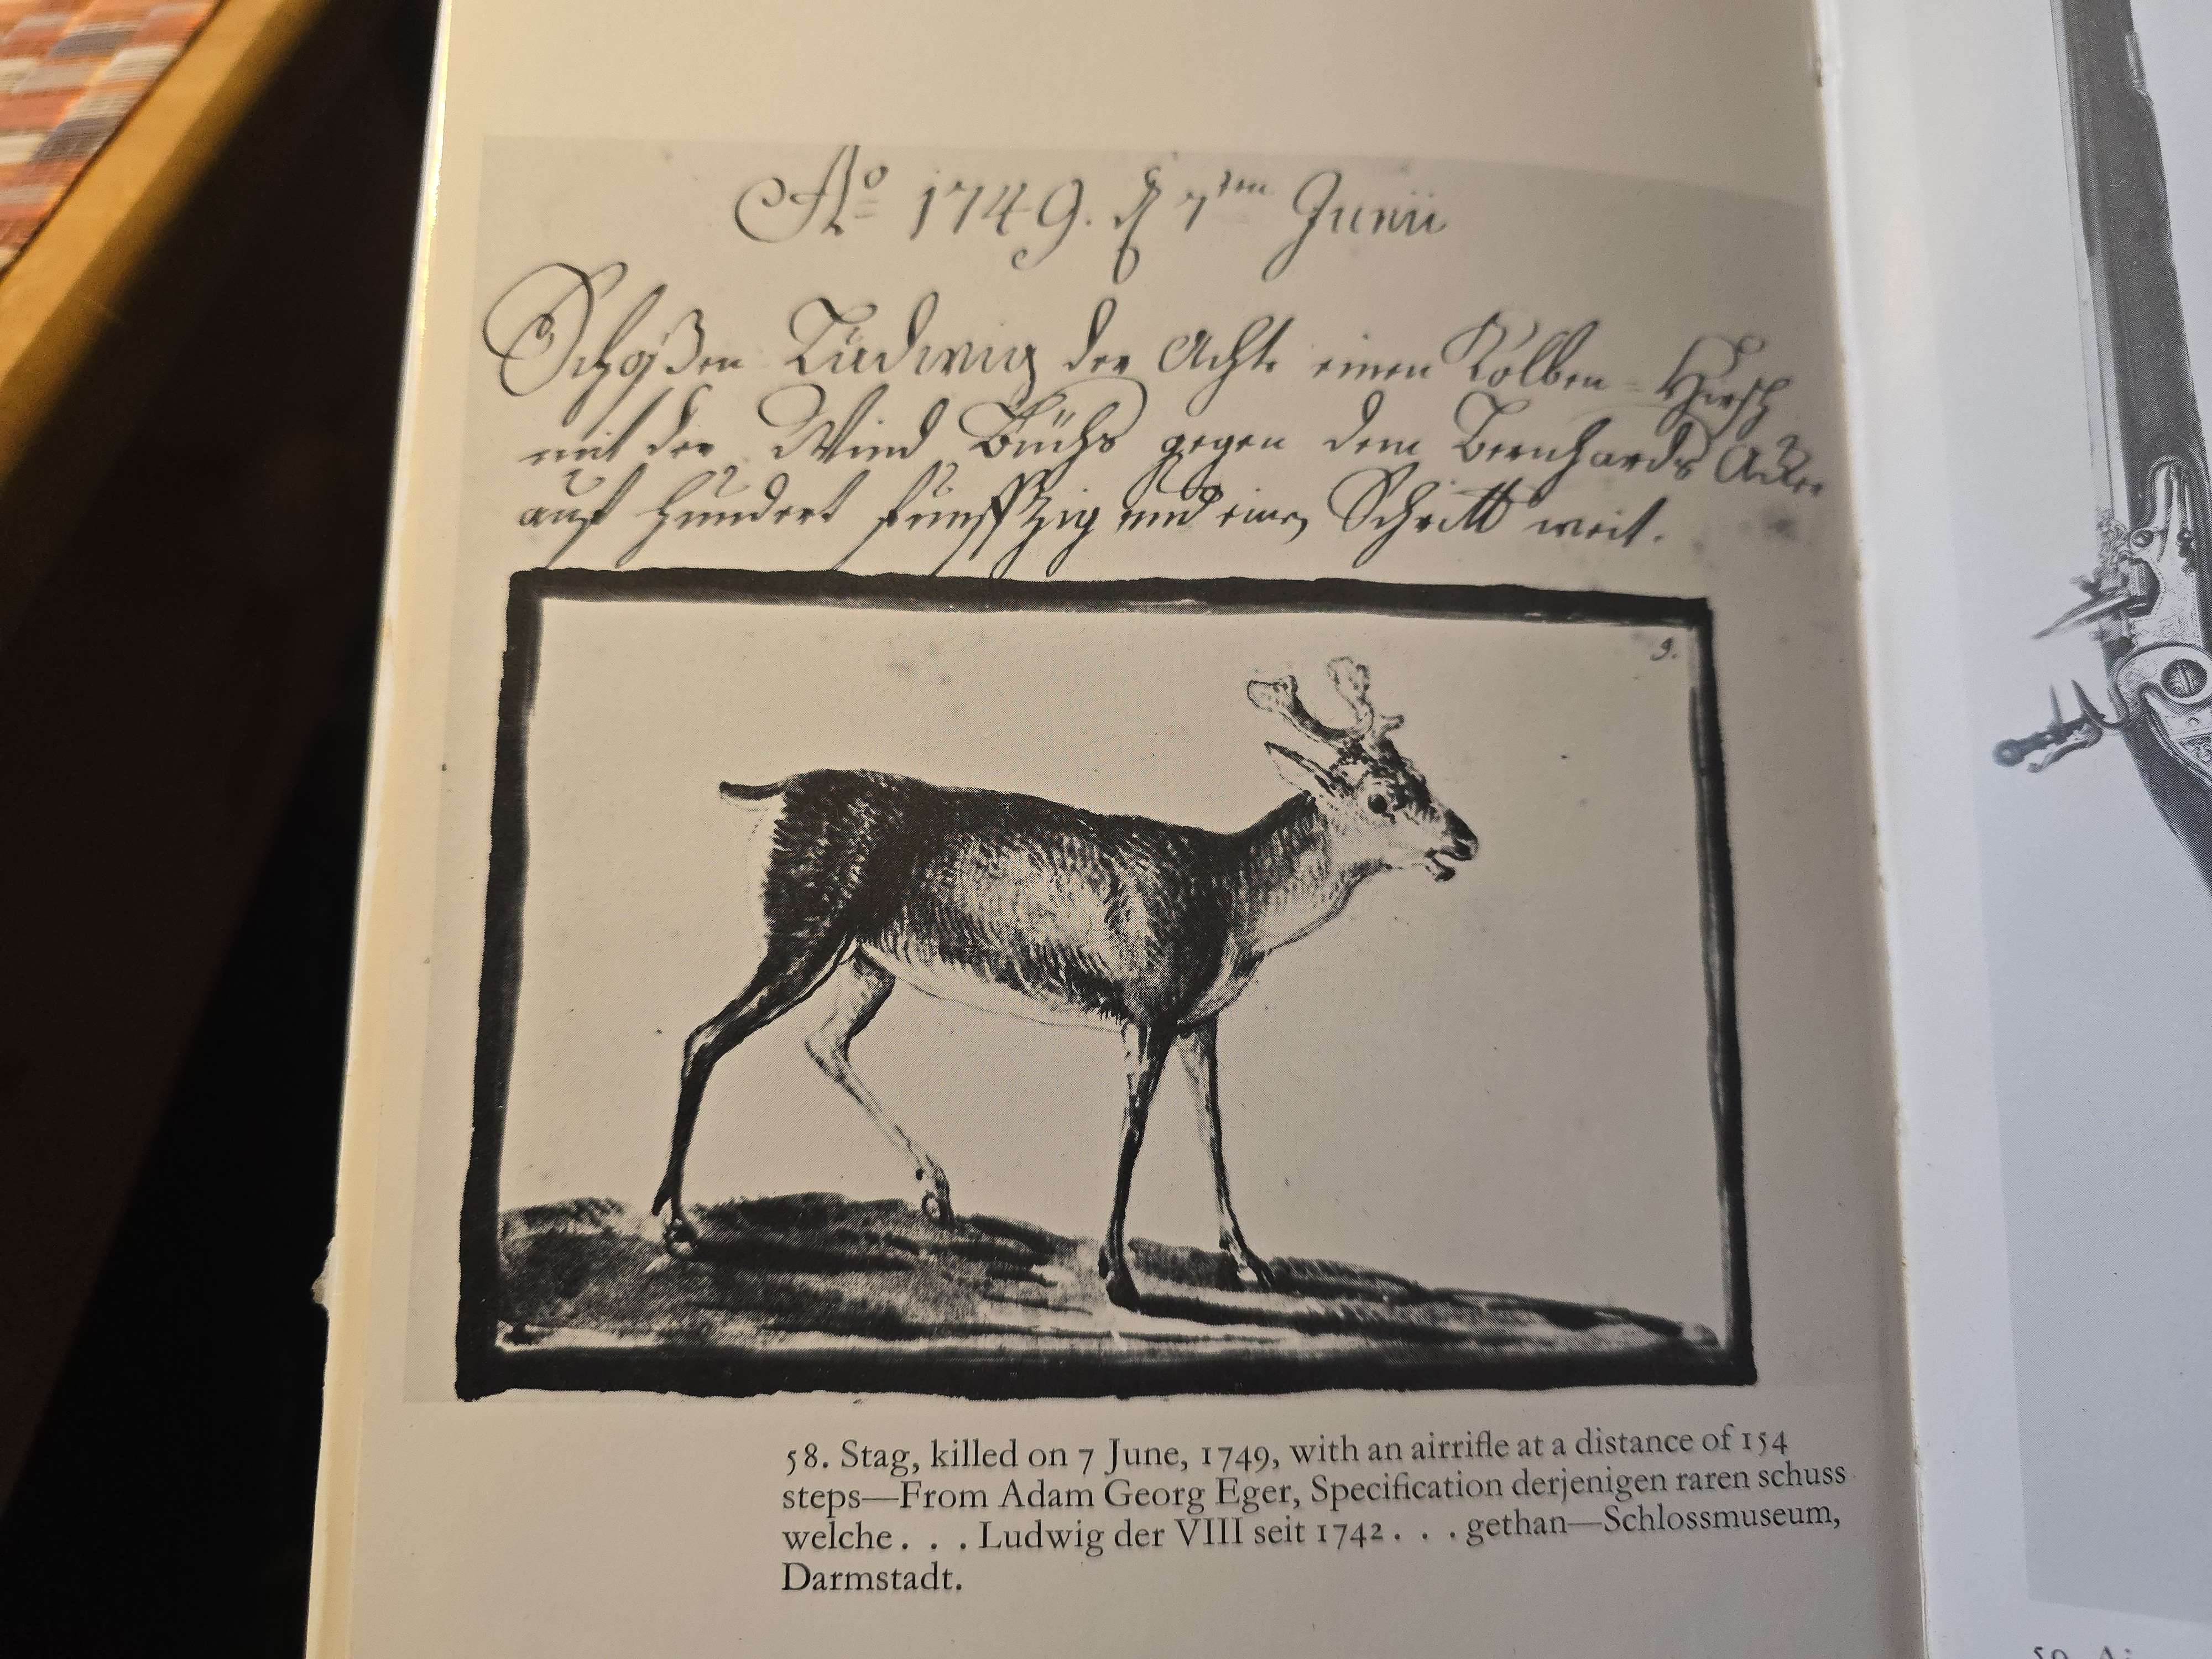 Ao 1749. d 7ten Junii
Schoßen Ludwig der Achte einen Kolben-Hirsch
mit der Wind Büchs gegen dem Bernhards Acker
auf hundert funffzig und einen Schritt weit.
9.
58. Stag, killed on 7 June, 1749, with an airrifle at a distance of 154
steps—From Adam Georg Eger, Specification derjenigen raren schuss
welche . . . Ludwig der VIII seit 1742 . . . gethan—Schlossmuseum,
Darmstadt.